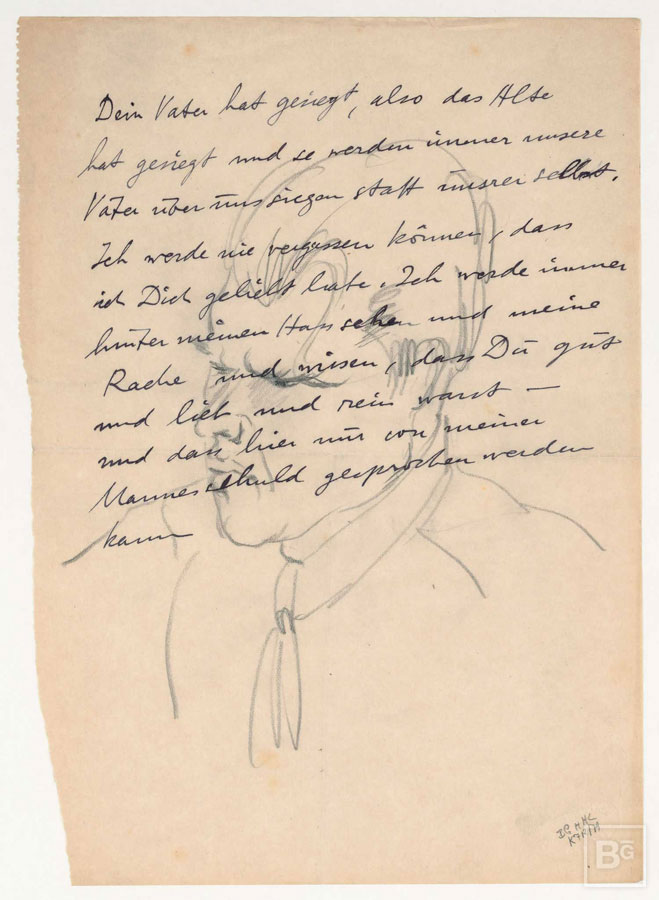 Dein Vater hat gesiegt, also das Alte
hat gesiegt und so werden immer unsere
Väter über uns siegen statt unsrer selbst.
Ich werde nie vergessen können, dass
ich Dich geliebt habe. Ich werde immer
hinter meinen Hass sehen und meine
Rache und wissen, dass Du gut
und lieb und rein warst —
und dass hier nur von meiner
Mannesschuld gesprochen werden
kann
BG